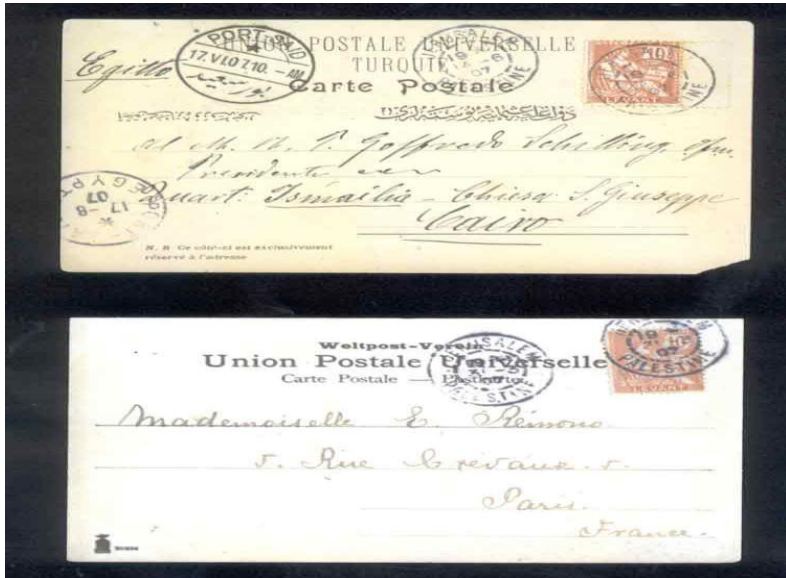 UNION POSTALE UNIVERSELLE
TURQUIE
Carte Postale
PORT-SAID
17.VI.07 7.10.-AM
بور سعيد
JERUSALEM
PALESTINE
10
LEVANT
Egitto
Al M. R. P. Goffredo Schilling
Presidente
Quart. Ismailia - Chiesa S. Giuseppe
Cairo
EGYPT
17-6
07
N. B. Ce côté-ci est exclusivement
réservé à l'adresse
Weltpost-Verein
Union Postale Universelle
Carte Postale — Postkarte
JERUSALEM
PALESTINE
PALESTINE
LEVANT
Mademoiselle E. Rémond
5. Rue Crevaux. 5.
Paris.
France.